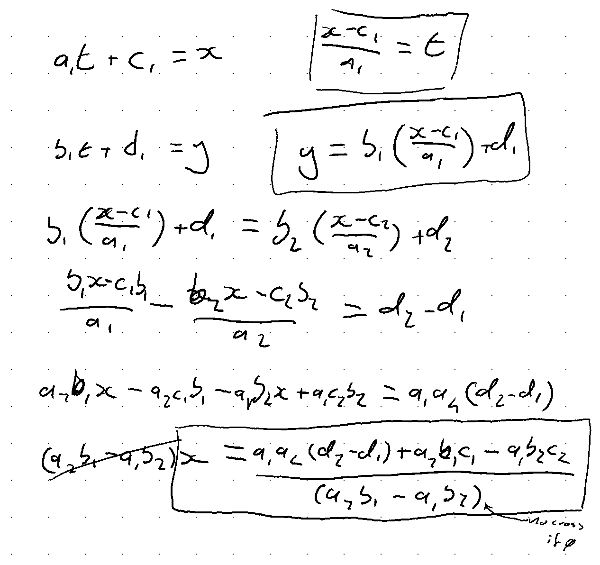 a₁t + c₁ = x    (x-c₁)/a₁ = t
b₁t + d₁ = y    y = b₁((x-c₁)/a₁)+d₁
b₁((x-c₁)/a₁)+d₁ = b₂((x-c₂)/a₂)+d₂
(b₁x-c₁b₁)/a₁ - (b₂x-c₂b₂)/a₂ = d₂-d₁
a₂b₁x - a₂c₁b₁ - a₁b₂x + a₁c₂b₂ = a₁a₂(d₂-d₁)
(a₂b₁-a₁b₂)x = (a₁a₂(d₂-d₁)+a₂b₁c₁ - a₁b₂c₂)/(a₂b₁ - a₁b₂)
no cross
if 0